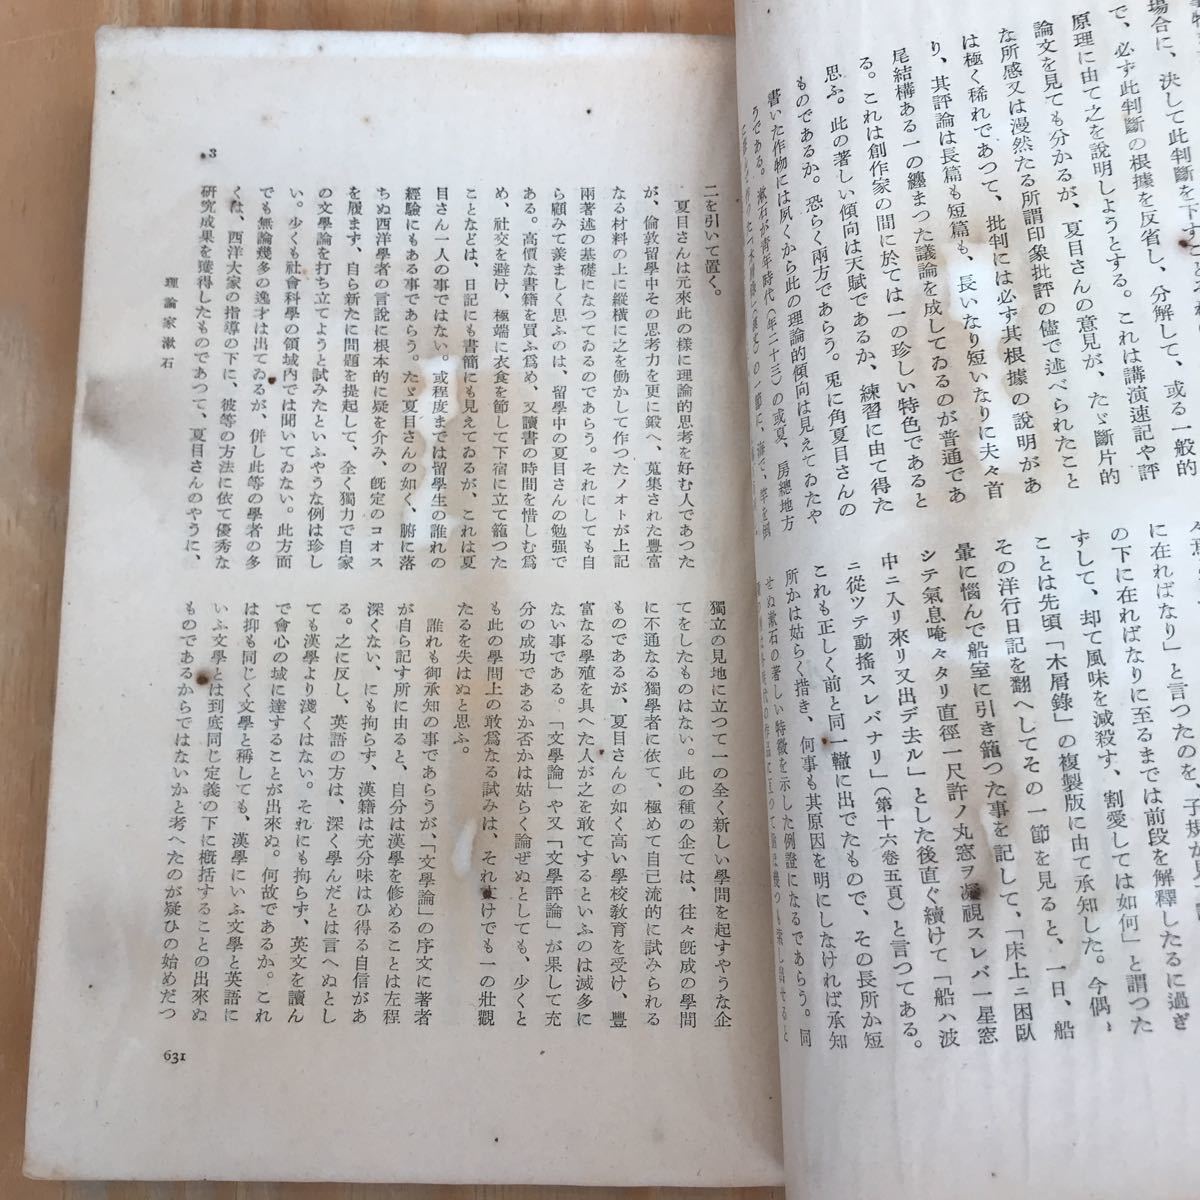 場合に、決して此判斷を下すこと
で、必ず此判斷の根據を反省し、分解して、或る一般的
原理に由て之を說明しようとする。これは講演速記や評
論文を見ても分かるが、夏目さんの意見が、たゞ斷片的
な所感又は漫然たる所謂印象批評の儘で述べられたこと
は極く稀れであつて、批判には必ず其根據の說明があ
り、其評論は長篇も短篇も、長いなり短いなりに夫々首
尾結構ある一の纏まつた議論を成してゐるのが普通であ
る。これは創作家の間に於ては一の珍しい特色であると
思ふ。此の著しい傾向は天賦であるか、練習に由て得た
ものであるか。恐らく兩方であらう。兎に角夏目さんの
書いた作物には夙くから此の理論的傾向は見えてゐたや
うである。漱石が靑年時代(年二十三)の或夏、房總地方
に在ればなり」と言つたのを、子規が
の下に在ればなりに至るまでは前段を解釋したるに過ぎ
ずして、却て風味を減殺す、割愛しては如何」と謂つた
ことは先頃「木屑錄」の複製版に由て承知した。今偶〻
その洋行日記を翻へしてその一節を見ると、一日、船
暈に惱んで船室に引き籠つた事を記して、「床上ニ困臥
シテ氣息唵々タリ直徑一尺許ノ丸窓ヲ凝視スレバ一星窓
中ニ入リ來リ又出デ去ル」とした後直ぐ續けて「船ハ波
ニ從ツテ動搖スレバナリ」(第十六卷五頁)と言つてある。
これも正しく前と同一轍に出でたもので、その長所か短
所かは姑らく措き、何事も其原因を明にしなければ承知
せぬ漱石の著しい特徵を示した例證になるであらう。同
二を引いて置く。
夏目さんは元來此の樣に理論的思考を好む人であつた
が、倫敦留學中その思考力を更に鍛へ、蒐集された豐富
なる材料の上に縱橫に之を働かして作つたノォトが上記
兩著述の基礎になつてゐるのであらう。それにしても自
ら顧みて羨ましく思ふのは、留學中の夏目さんの勉强で
ある。高價な書籍を買ふ爲め、又讀書の時間を惜しむ爲
め、社交を避け、極端に衣食を節して下宿に立て籠つた
ことなどは、日記にも書簡にも見えてゐるが、これは夏
目さん一人の事ではない。或程度までは留學生の誰れの
經驗にもある事であらう。たゞ夏目さんの如く、腑に落
ちぬ西洋學者の言說に根本的に疑を介み、旣定のコオス
を履まず、自ら新たに問題を提起して、全く獨力で自家
の文學論を打ち立てようと試みたといふやうな例は珍し
い。少くも社會科學の領域內では聞いてゐない。此方面
でも無論幾多の逸才は出てゐるが、併し此等の學者の多
くは、西洋大家の指導の下に、彼等の方法に依て優秀な
硏究成果を獲得したものであつて、夏目さんのやうに、
獨立の見地に立つて一の全く新しい學問を起すやうな企
てをしたものはない。此の種の企ては、往々旣成の學問
に不通なる獨學者に依て、極めて自己流的に試みられる
ものであるが、夏目さんの如く高い學校敎育を受け、豐
富なる學殖を具へた人が之を敢てするといふのは滅多に
ない事である。「文學論」や又「文學評論」が果して充
分の成功であるか否かは姑らく論ぜぬとしても、少くと
も此の學問上の敢爲なる試みは、それ丈けでも一の壯觀
たるを失はぬと思ふ。
誰れも御承知の事であらうが、「文學論」の序文に著者
が自ら記す所に由ると、自分は漢學を修めることは左程
深くない、にも拘らず、漢籍は充分味はひ得る自信があ
る。之に反し、英語の方は、深く學んだとは言へぬとし
ても漢學より淺くはない。それにも拘らず、英文を讀ん
で會心の域に達することが出來ぬ。何故であるか。これ
は抑も同じく文學と稱しても、漢學にいふ文學と英語に
いふ文學とは到底同じ定義の下に槪括することの出來ぬ
ものであるからではないかと考へたのが疑ひの始めだつ
3
理論家漱石
631